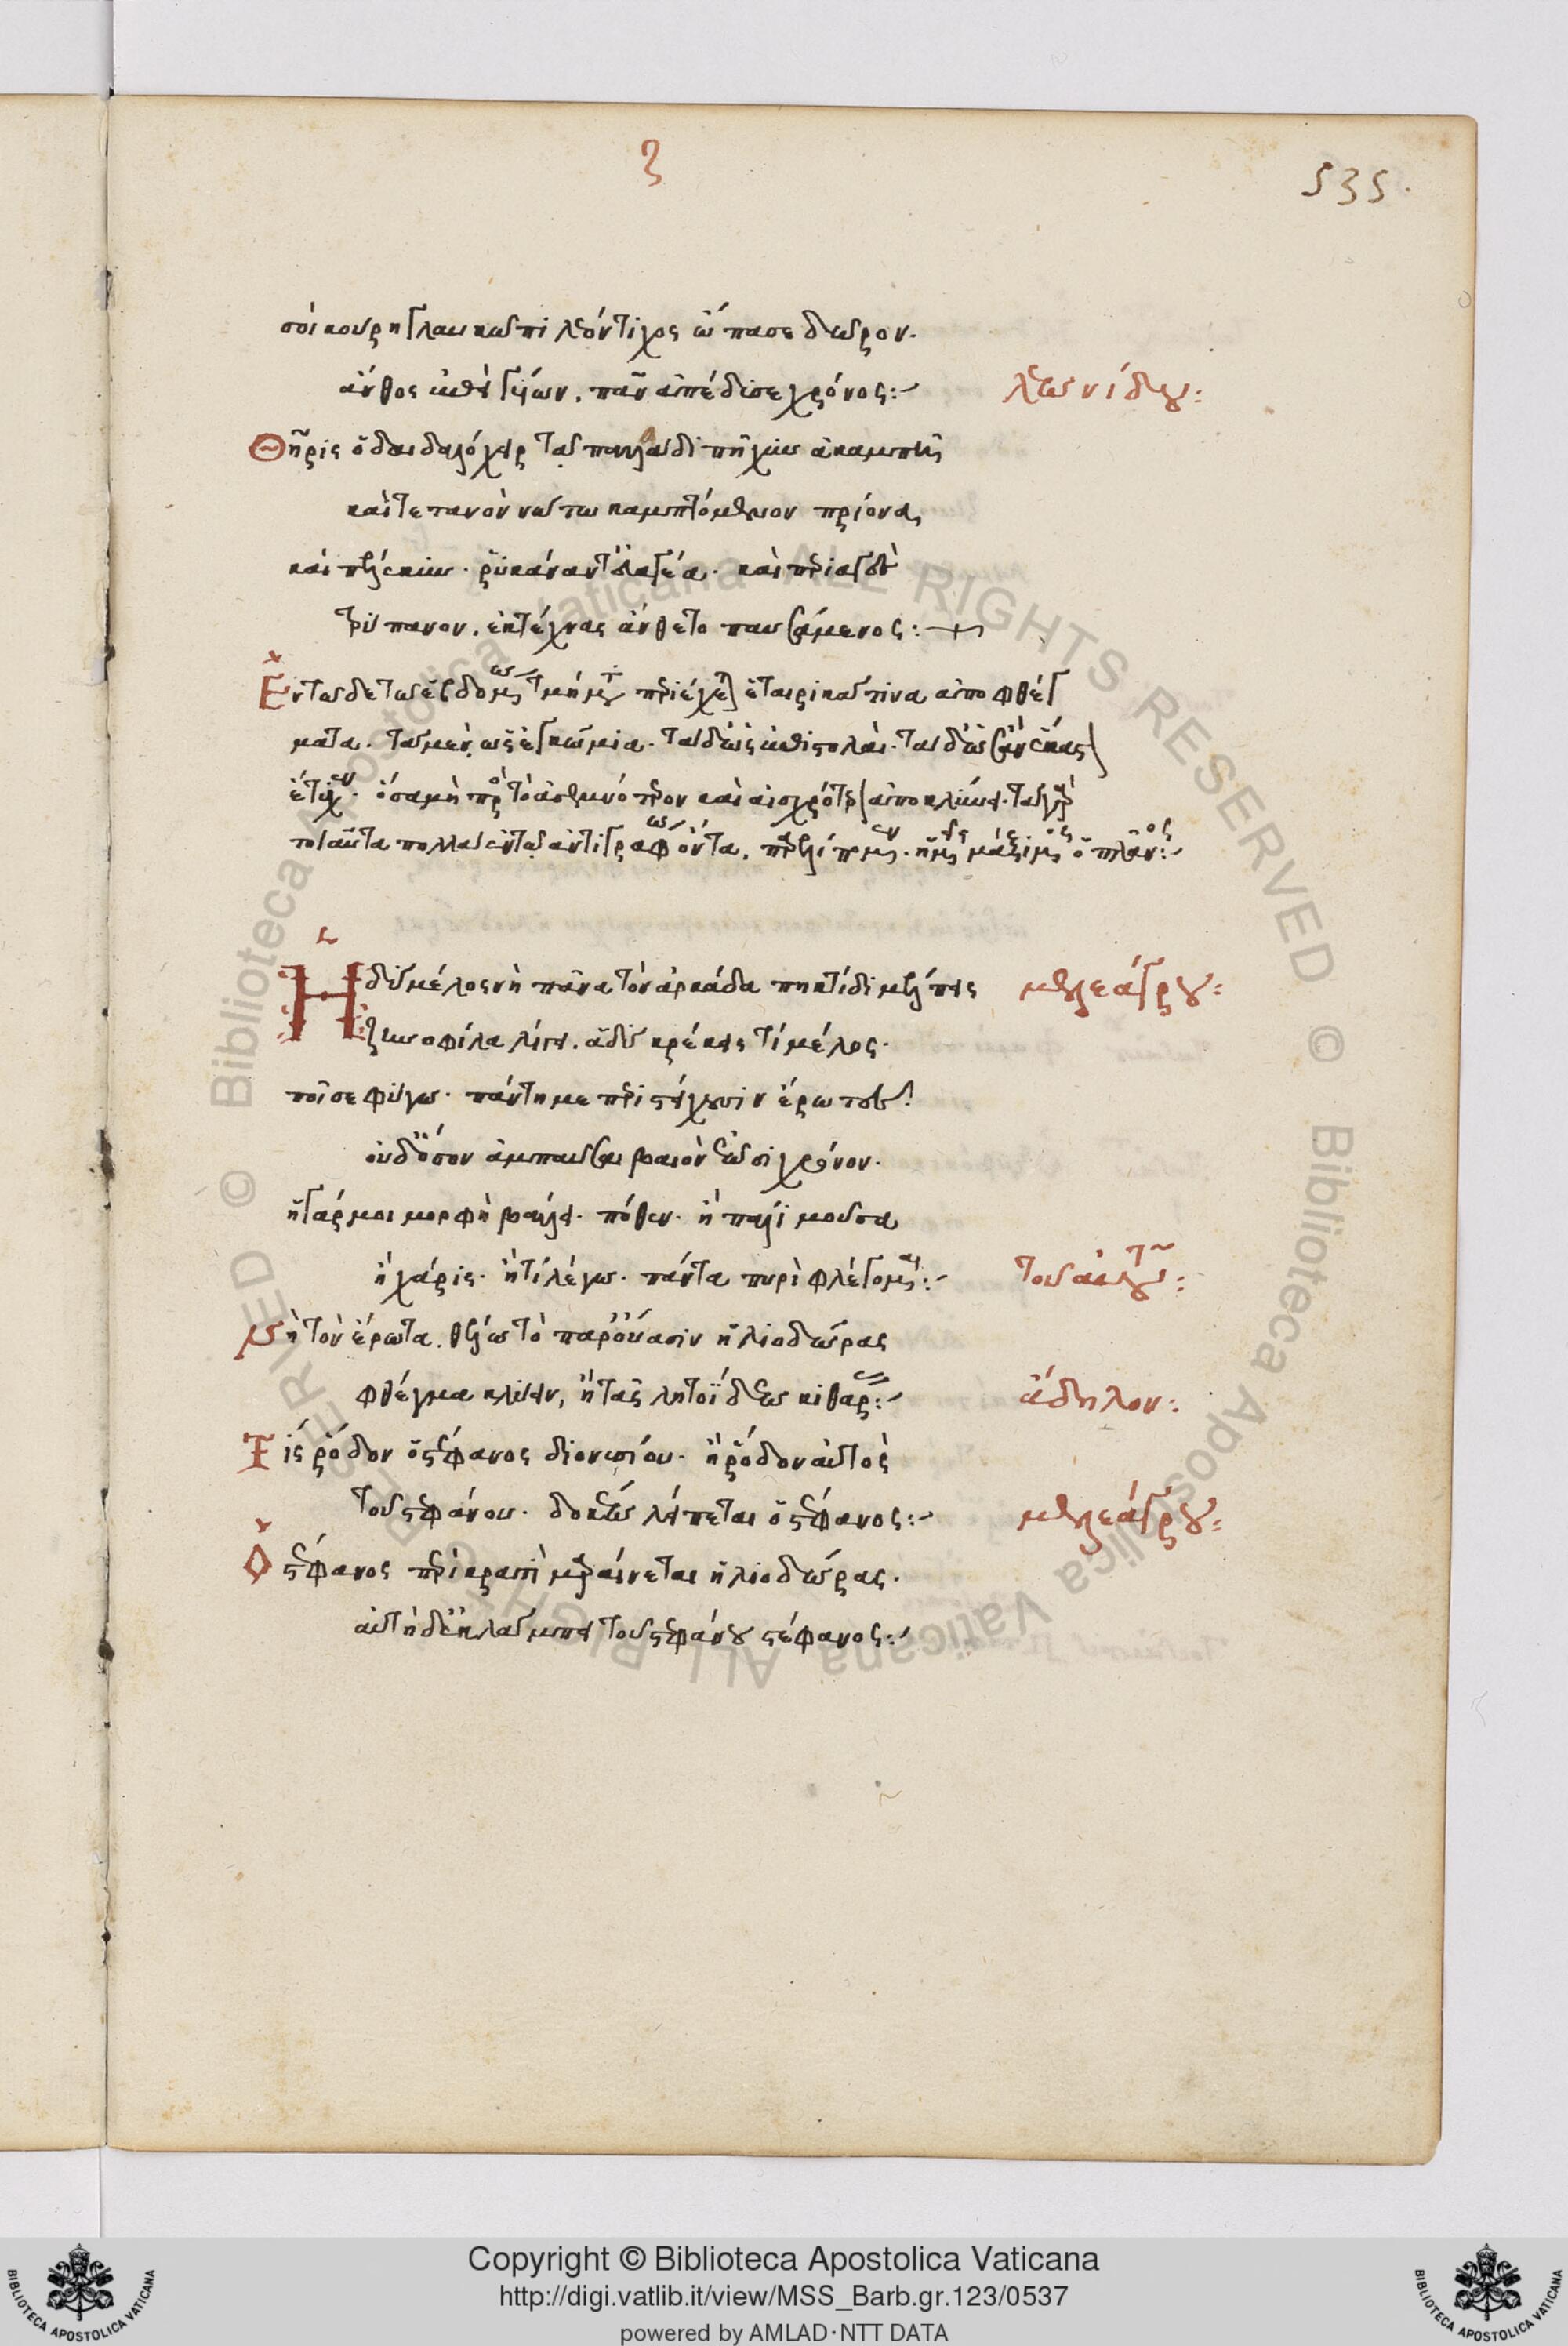 ζ
535.
σοὶ κούρη γλαυκῶπι λεόντιχος ὤπασε δῶρον.
ἄνθος ἐπεὶ γυίων. πᾶν ἀπέδυσε χρόνος:~ λεωνίδου:
Θῆρις ὁ δαιδαλόχειρ τᾷ παλλάδι πῆχυν ἀκαμπῆ
καὶ τετανὸν νώτω καμπτόμενον πρίονα
καὶ πέλεκυν. ῥυκάναν τ' εὐαγέα. καὶ περιαγὲς
τρύπανον. ἐκ τέχνας ἄνθετο παυσάμενος:~+
Ἐν τῶδε τῷ ἑβδόμῳ τμήματι περιέχεται ἑταιρικά τινα ἀποφθέγ
ματα. τὰ μὲν ὡς ἐγκώμια. τὰ δ' ὡς ἐπιστολαὶ. τὰ δ' ὡς ἂν ἑκάστῳ
ἔτυχεν. ὅσα μὴ πρὸς τὸ ἀσεμνότερον καὶ αἰσχρότερον ἀποκλίνει. τὰ γὰρ
τοιαῦτα πολλὰ ἐν τῷ ἀντιγράφῳ ὄντα. παρελίπομεν. ἡμεῖς μάξιμος ὁ πλανούδης:~
Ἡδὺ μέλος ναὶ πᾶνα τὸν ἀρκάδα πηκτίδι μέλπεις μελεάγρου:
ζηνοφίλα λίην. ἁδὺ κρέκεις τι μέλος.
ποῖ σε φύγω. πάντη με περιστείχουσιν ἔρωτες.
οὐδ' ὅσον ἀμπαῦσαι βαιὸν ἐῶσι χρόνον.
ἢ γάρ μοι μορφὴ βάλλει πόθον. ἢ πάλι μοῦσα
ἢ χάρις. ἢ τί λέγω. πάντα πυρὶ φλέγομαι:~ τοῦ αὐτοῦ:
μὰ τὸν ἔρωτα. θέλω τὸ παρ' οὔασιν ἡλιοδώρας
φθέγμα κλύειν, ἢ τᾶς λητοΐδεω κιθάρας:~ ἄδηλον:
Τίς ῥόδον ὁ στέφανος διονυσίου. ἢ ῥόδον αὐτὸς
τοῦ στεφάνου. δοκέω λείπεται ὁ στέφανος:~ μελεάγρου:
Ὁ στέφανος περὶ κρατὶ μαραίνεται ἡλιοδώρας.
αὐτὴ δ' ἐκλάμπει τοῦ στεφάνου στέφανος:~
Copyright © Biblioteca Apostolica Vaticana
http://digi.vatlib.it/view/MSS_Barb.gr.123/0537
powered by AMLAD·NTT DATA